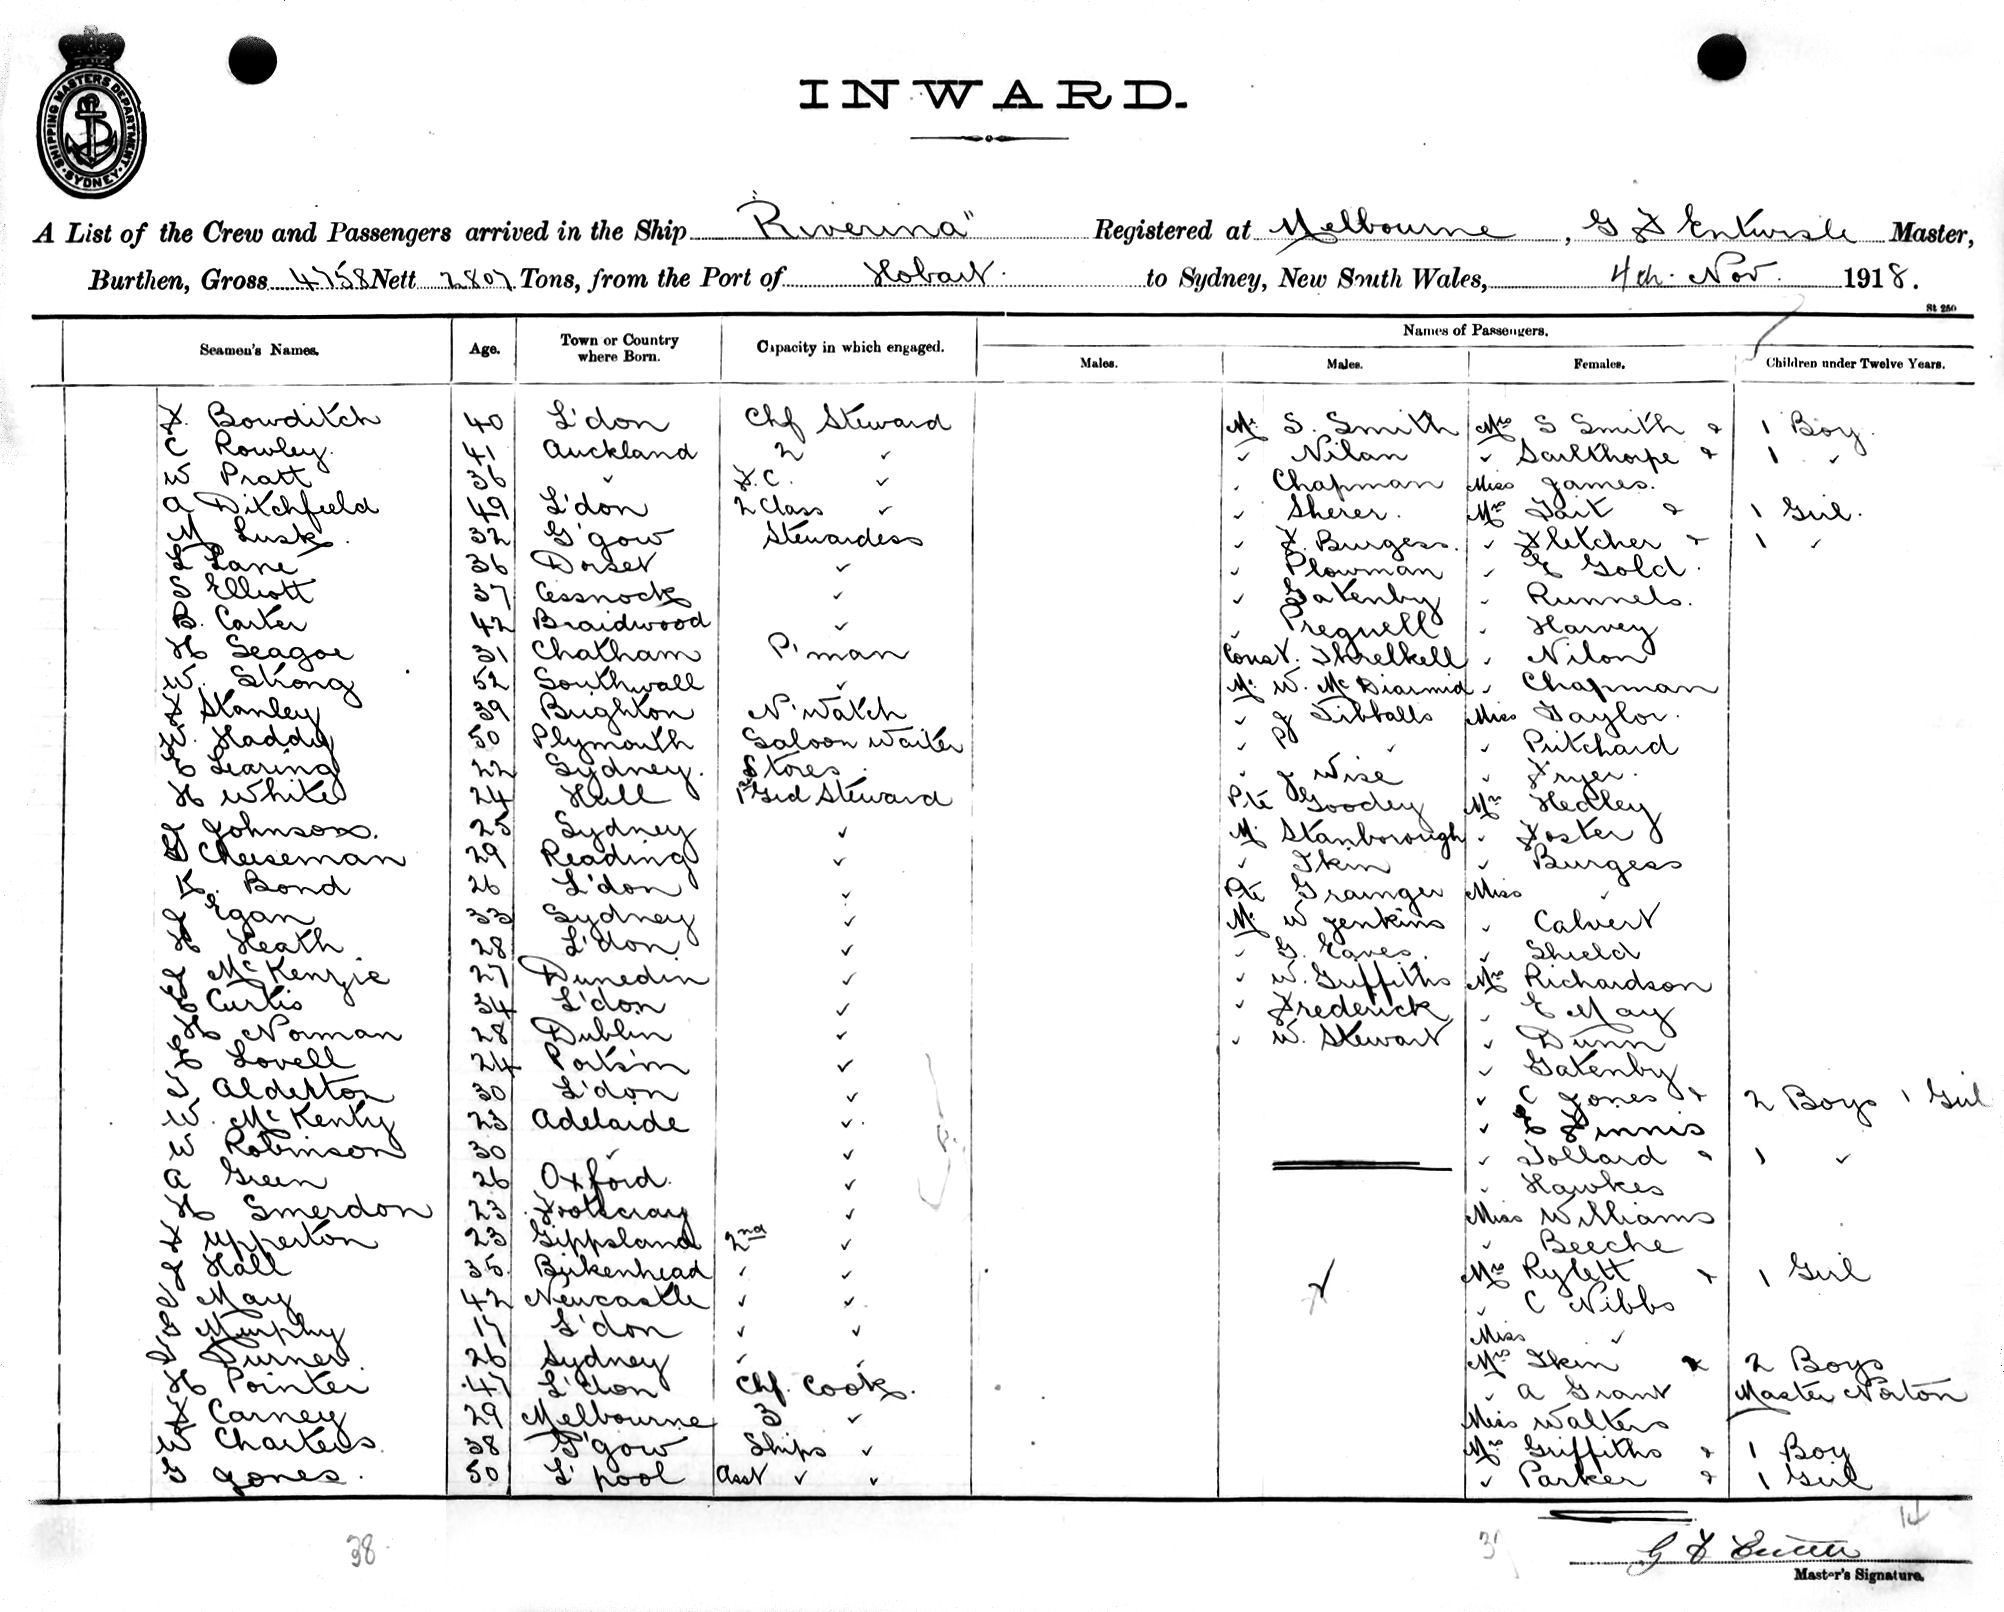 SHIPPING MASTERS DEPARTMENT · SYDNEY ·
INWARD.
A List of the Crew and Passengers arrived in the Ship "Riverina" Registered at Melbourne, G F Entwisle Master,
Burthen, Gross 4758 Nett 2807 Tons, from the Port of Hobart. to Sydney, New South Wales, 4th. Nov. 1918.
St 250
Names of Passengers.
Seamen's Names. Age. Town or Country where Born. Capacity in which engaged. Males. Males. Females. Children under Twelve Years.
F. Bowditch 40 L'don Chf Steward Mr. S. Smith Mrs S Smith & 1 Boy.
C Rowley. 41 Auckland 2 ✓ ✓ Nilan ✓ Sculthorpe & 1 ✓
W Pratt 36 ✓ F.C. ✓ ✓ Chapman Miss James.
A Ditchfield 49 L'don 2 Class ✓ ✓ Sherer. Mrs Tait & 1 Girl.
M Lusk. 32 G'gow Stewardess ✓ F. Burgess. ✓ Fletcher & 1 ✓
L Lane 36 Dorset ✓ ✓ Plowman ✓ E Gold.
S Elliott 37 Cessnock ✓ ✓ Gatenby ✓ Runnels.
B. Carter 42 Braidwood ✓ ✓ Pregnell ✓ Harvey
H Seagoe 31 Chatham P'man Const. Threlkell ✓ Nilon
W. Strong 52 Southwall ✓ Mr. W. McDiarmid ✓ Chapman
F Stanley 39 Brighton N'Watch ✓ J Tibballs Miss Taylor.
W. Haddy 50 Plymouth Saloon Waiter ✓ P ✓ ✓ Pritchard
E Learing 22 Sydney. Stores. ✓ J Wise ✓ Fryer.
H White 24 Hull Ged Steward Pte Goodey Mrs Hedley
J Johnson. 25 Sydney ✓ Mr. Stanborough ✓ Foster
G Cheeseman 29 Reading ✓ ✓ Ikin ✓ Burgess
K. Bond 26 L'don ✓ Pte Grainger Miss ✓
J Egan 33 Sydney ✓ Mr. W Jenkins ✓ Calvert
H Heath 28 L'don ✓ ✓ G. Eaves. ✓ Shield
J McKenzie 27 Dunedin ✓ ✓ W. Griffiths Mrs Richardson
E Curtis 34 L'don ✓ ✓ Frederick ✓ E May
H Norman 28 Dublin ✓ ✓ W. Stewart ✓ Dunn
E Lovell 24 Ports'm ✓ ✓ Gatenby
T Alderton 30 L'don ✓ ✓ C Jones & 2 Boys 1 Girl
W. McKenty 23 Adelaide ✓ ✓ E Finnis
W Robinson 30 ✓ ✓ ✓ Tollard & 1 ✓
A Green 26 Oxford. ✓ ✓ Hawkes
H Smerdon 23 Footscray ✓ Miss Williams
F Upperton 23 Gippsland 2nd ✓ ✓ Beeche
J Hall 35 Birkenhead ✓ ✓ Mrs Rylett & 1 Girl
S May 42 Newcastle ✓ ✓ ✓ C Nibbs
G Murphy 17 L'don ✓ ✓ Miss ✓
S Purner. 26 Sydney ✓ ✓ Mrs Ikin & 2 Boys
H Pointer 47 L'don Chf. Cook. ✓ A Grant Master Norton
F Carney 29 Melbourne 3 ✓ Miss Walters
W Charters 38 G'gow Ships ✓ Mrs Griffiths & 1 Boy
G Jones. 50 L'pool Asst ✓ ✓ ✓ Parker & 1 Girl
38 14
Master's Signature.